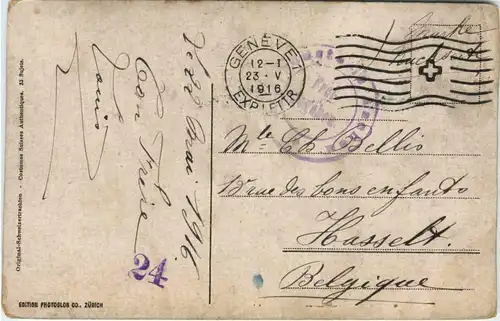 Original-Schweizertrachten - Costumes Suisses Authentiques. 22 Sujets.
Louis
Ton Frère
Mai 1916
24
GENÈVE 1
12-I
23.V
1916
EXP. LETTR.
Ch Bellis
15 rue des bons enfants
Hasselt.
Belgique
EDITION PHOTOGLOB CO., ZÜRICH